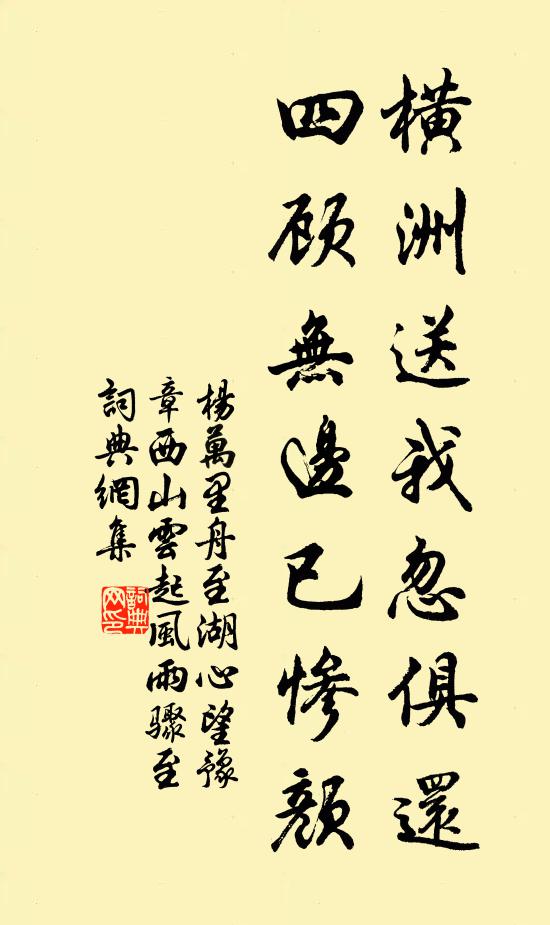 橫洲送我忽俱還
四顾無邊已慘顏
楊萬里舟至湖心望豫
章西山雲起風雨驟至
詞典網集
詞典
网印